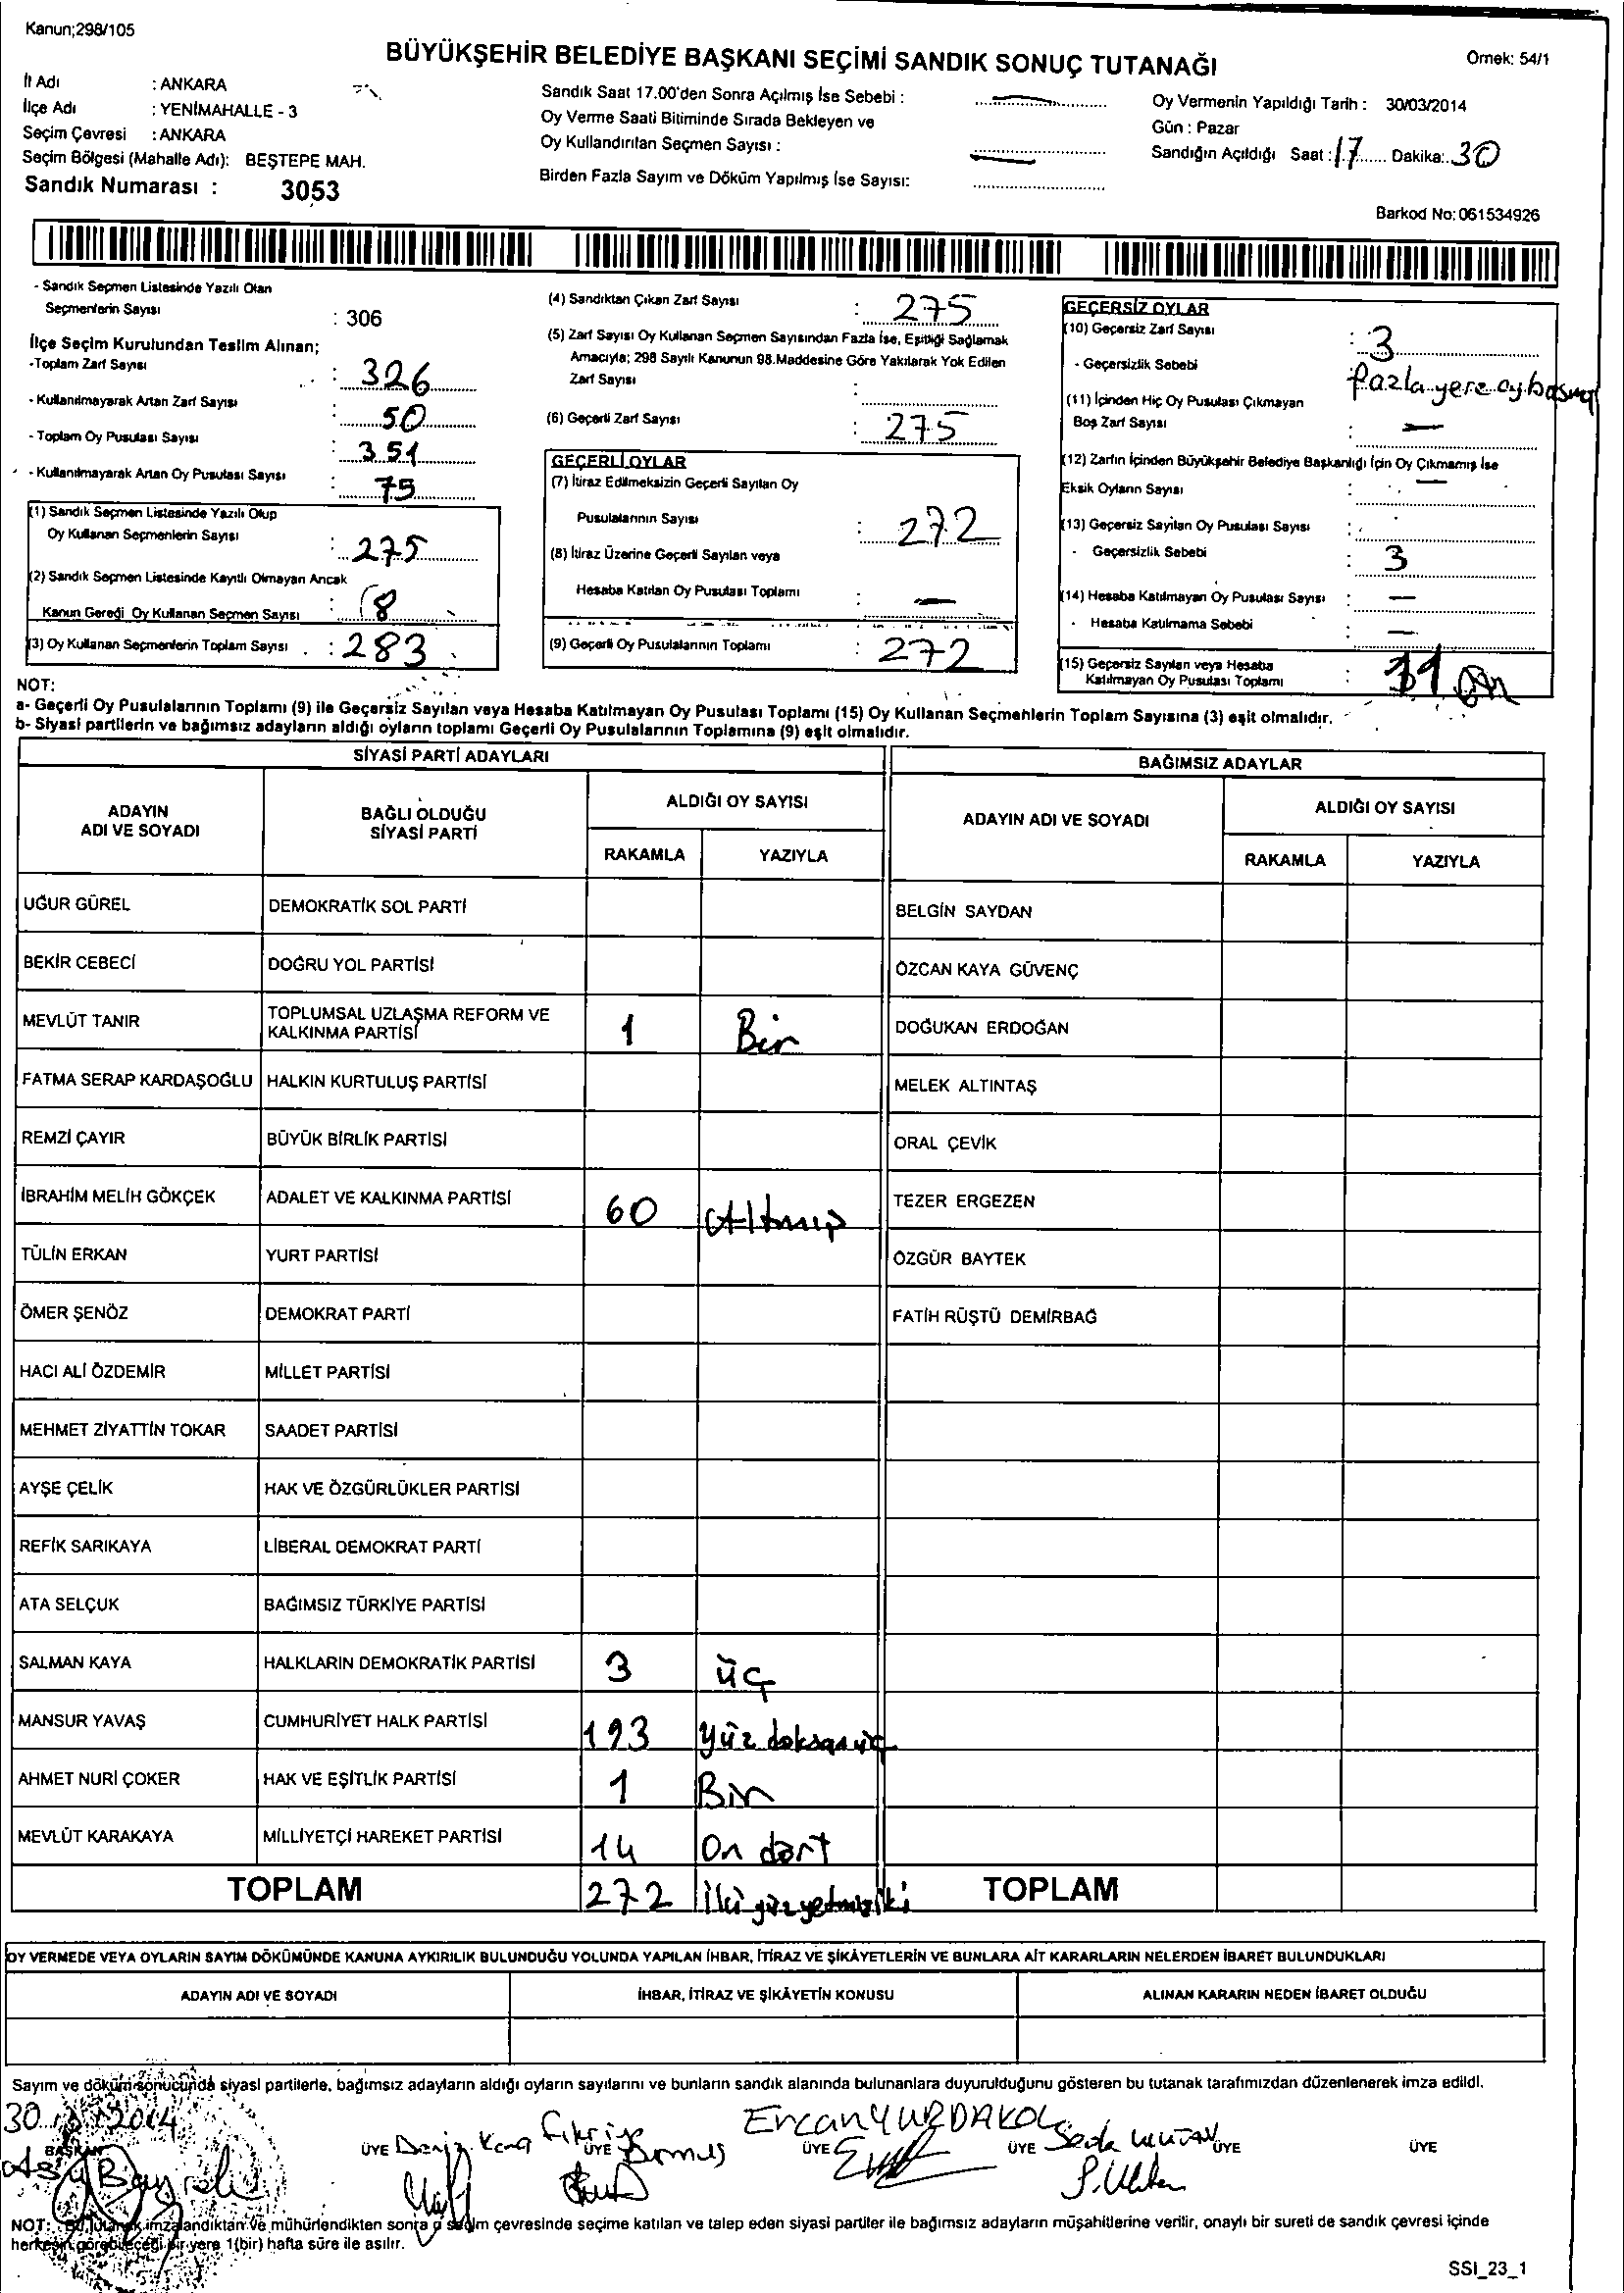 Kanun;298/105
BÜYÜKŞEHİR BELEDİYE BAŞKANI SEÇİMİ SANDIK SONUÇ TUTANAĞI
Örnek: 54/1
İl Adı : ANKARA
İlçe Adı : YENİMAHALLE - 3
Seçim Çevresi : ANKARA
Seçim Bölgesi (Mahalle Adı): BEŞTEPE MAH.
Sandık Numarası : 3053
Sandık Saat 17.00'den Sonra Açılmış İse Sebebi :
Oy Verme Saati Bitiminde Sırada Bekleyen ve
Oy Kullandırılan Seçmen Sayısı :
Birden Fazla Sayım ve Döküm Yapılmış İse Sayısı:
Oy Vermenin Yapıldığı Tarih : 30/03/2014
Gün : Pazar
Sandığın Açıldığı Saat : 17 Dakika: 30
Barkod No: 061534926
- Sandık Seçmen Listesinde Yazılı Olan
Seçmenlerin Sayısı : 306
İlçe Seçim Kurulundan Teslim Alınan;
-Toplam Zarf Sayısı : 326
- Kullanılmayarak Artan Zarf Sayısı : 50
- Toplam Oy Pusulası Sayısı : 351
- Kullanılmayarak Artan Oy Pusulası Sayısı : 75
(1) Sandık Seçmen Listesinde Yazılı Olup
Oy Kullanan Seçmenlerin Sayısı : 275
(2) Sandık Seçmen Listesinde Kayıtlı Olmayan Ancak
Kanun Gereği Oy Kullanan Seçmen Sayısı : 8
(3) Oy Kullanan Seçmenlerin Toplam Sayısı : 283
(4) Sandıktan Çıkan Zarf Sayısı : 275
(5) Zarf Sayısı Oy Kullanan Seçmen Sayısından Fazla İse, Eşitliği Sağlamak
Amacıyla; 298 Sayılı Kanunun 98.Maddesine Göre Yakılarak Yok Edilen
Zarf Sayısı :
(6) Geçerli Zarf Sayısı : 275
GEÇERLİ OYLAR
(7) İtiraz Edilmeksizin Geçerli Sayılan Oy
Pusulalarının Sayısı : 272
(8) İtiraz Üzerine Geçerli Sayılan veya
Hesaba Katılan Oy Pusulası Toplamı : —
(9) Geçerli Oy Pusulalarının Toplamı : 272
GEÇERSİZ OYLAR
(10) Geçersiz Zarf Sayısı : 3
- Geçersizlik Sebebi fazla yere oy basma
(11) İçinden Hiç Oy Pusulası Çıkmayan
Boş Zarf Sayısı : —
(12) Zarfın İçinden Büyükşehir Belediye Başkanlığı İçin Oy Çıkmamış İse
Eksik Oyların Sayısı : —
(13) Geçersiz Sayılan Oy Pusulası Sayısı :
- Geçersizlik Sebebi : 3
(14) Hesaba Katılmayan Oy Pusulası Sayısı : —
- Hesaba Katılmama Sebebi : —
(15) Geçersiz Sayılan veya Hesaba
Katılmayan Oy Pusulası Toplamı :
NOT:
a- Geçerli Oy Pusulalarının Toplamı (9) ile Geçersiz Sayılan veya Hesaba Katılmayan Oy Pusulası Toplamı (15) Oy Kullanan Seçmenlerin Toplam Sayısına (3) eşit olmalıdır.
b- Siyasi partilerin ve bağımsız adayların aldığı oyların toplamı Geçerli Oy Pusulalarının Toplamına (9) eşit olmalıdır.
SİYASİ PARTİ ADAYLARI
BAĞIMSIZ ADAYLAR
ADAYIN ADI VE SOYADI
BAĞLI OLDUĞU SİYASİ PARTİ
ALDIĞI OY SAYISI
RAKAMLA YAZIYLA
ADAYIN ADI VE SOYADI
ALDIĞI OY SAYISI
RAKAMLA YAZIYLA
UĞUR GÜREL DEMOKRATİK SOL PARTİ BELGİN SAYDAN
BEKİR CEBECİ DOĞRU YOL PARTİSİ ÖZCAN KAYA GÜVENÇ
MEVLÜT TANIR TOPLUMSAL UZLAŞMA REFORM VE KALKINMA PARTİSİ 1 Bir DOĞUKAN ERDOĞAN
FATMA SERAP KARDAŞOĞLU HALKIN KURTULUŞ PARTİSİ MELEK ALTINTAŞ
REMZİ ÇAYIR BÜYÜK BİRLİK PARTİSİ ORAL ÇEVİK
İBRAHİM MELİH GÖKÇEK ADALET VE KALKINMA PARTİSİ 60 Altmış TEZER ERGEZEN
TÜLİN ERKAN YURT PARTİSİ ÖZGÜR BAYTEK
ÖMER ŞENÖZ DEMOKRAT PARTİ FATİH RÜŞTÜ DEMİRBAĞ
HACI ALİ ÖZDEMİR MİLLET PARTİSİ
MEHMET ZİYATTİN TOKAR SAADET PARTİSİ
AYŞE ÇELİK HAK VE ÖZGÜRLÜKLER PARTİSİ
REFİK SARIKAYA LİBERAL DEMOKRAT PARTİ
ATA SELÇUK BAĞIMSIZ TÜRKİYE PARTİSİ
SALMAN KAYA HALKLARIN DEMOKRATİK PARTİSİ 3 üç
MANSUR YAVAŞ CUMHURİYET HALK PARTİSİ 193 Yüz doksan üç
AHMET NURİ ÇOKER HAK VE EŞİTLİK PARTİSİ 1 Bir
MEVLÜT KARAKAYA MİLLİYETÇİ HAREKET PARTİSİ 14 On dört
TOPLAM 272 İki yüz yetmiş iki TOPLAM
OY VERMEDE VEYA OYLARIN SAYIM DÖKÜMÜNDE KANUNA AYKIRILIK BULUNDUĞU YOLUNDA YAPILAN İHBAR, İTİRAZ VE ŞİKÂYETLERİN VE BUNLARA AİT KARARLARIN NELERDEN İBARET BULUNDUKLARI
ADAYIN ADI VE SOYADI İHBAR, İTİRAZ VE ŞİKÂYETİN KONUSU ALINAN KARARIN NEDEN İBARET OLDUĞU
Sayım ve döküm sonucunda siyasi partilerle, bağımsız adayların aldığı oyların sayılarını ve bunların sandık alanında bulunanlara duyurulduğunu gösteren bu tutanak tarafımızdan düzenlenerek imza edildi.
BAŞKAN ÜYE Deniz ÜYE Fikriye ÜYE Ercan YURDAKOL ÜYE Seda ÜYE ÜYE
NOT: Bu tutanak imzalandıktan ve mühürlendikten sonra o seçim çevresinde seçime katılan ve talep eden siyasi partiler ile bağımsız adayların müşahitlerine verilir, onaylı bir sureti de sandık çevresi içinde
herkesin görebileceği bir yere 1(bir) hafta süre ile asılır.
SSI_23_1